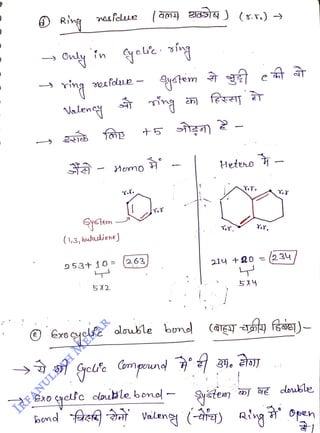 ⓓ Ring residue (वलय अवशेष) (r.r.) →
→ Only in Cyclic ring
→ ring residue - System से जुड़ी C की वो
Valency जो ring का हिस्सा हो
→ इसके लिए +5 जोड़ना है -
जैसे - Homo में - Hetero में -
r.r. r.r. r.r
r.r
System r.r. r.r.
(1,3, butadiene)
253 + 10 = 263 214 + 20 = 234
5x2 5x4
ⓔ Exocyclic double bond (बाह्य चक्रीय द्विबंध) -
→ ये भी Cyclic Compound में ही उप. होगा
→ Exo cyclic double bond - System का वह double
bond जिसकी दोनों Valency Ring में open
हो।
IRFANULLAH MEHAR